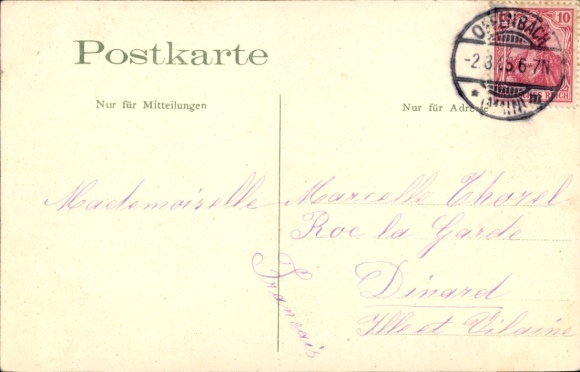 Postkarte
Nur für Mitteilungen
Nur für Adresse
10
OFFENBACH
6-7N
* (MAIN)
REICH
Mademoiselle Marcelle Thorel
Roc la Garde
Dinard
Ille et Vilaine
Francais